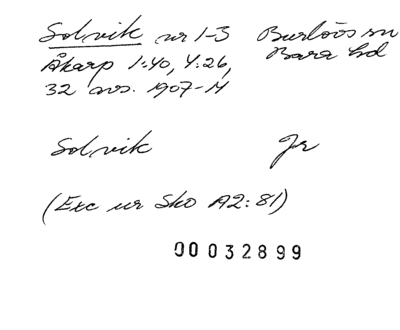 Solvik nr 1-3 Burlövs sn
Åkarp 1:40, 4:26, Bara hd
32 avs. 1907-14
Solvik Jr
(Exc ur Sko A2:81)
00032899